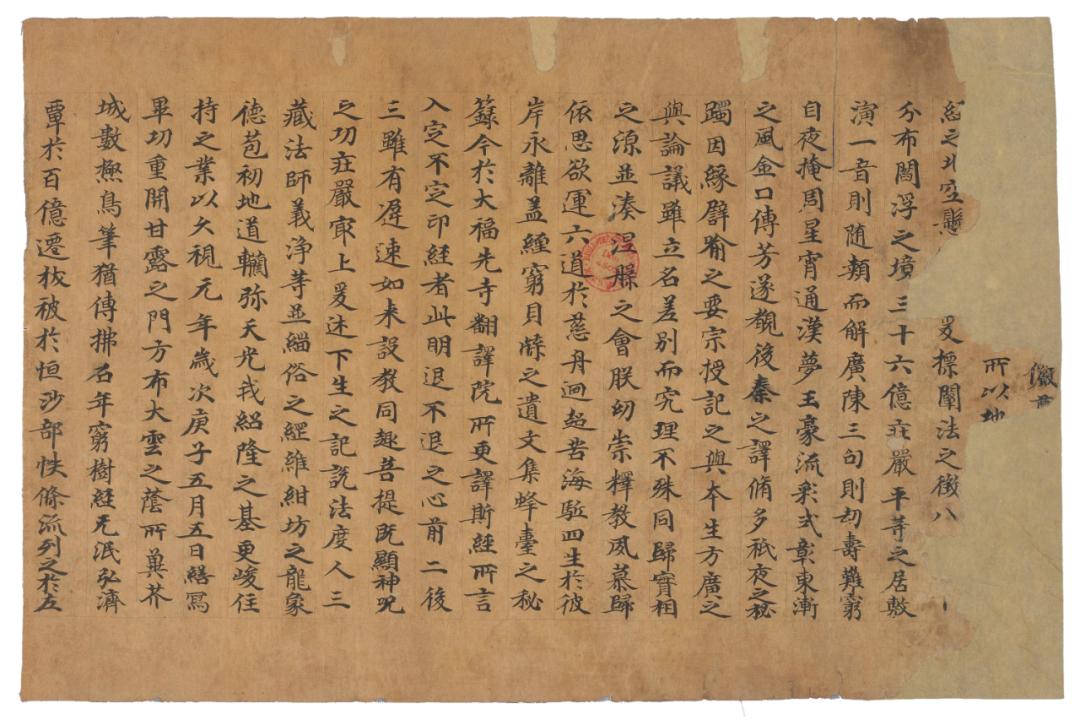 徵
所以地
之北空懸爰標闡法之徵八
分布閻浮之境三十六億莊嚴平等之居敷
演一音則随類而解廣陳三句則劫壽難窮
自夜掩周星宵通漢夢玉豪流彩式彰東漸
之風金口傳芳遂覩後秦之譯脩多祇夜之秘
躅因緣譬喻之要宗授記之與本生方廣之
與論議雖立名差別而究理不殊同歸實相
之源並湊涅槃之會朕幼崇釋教夙慕歸
依思欲運六道於慈舟迥超苦海駈四生於彼
岸永離蓋纏窮貝牒之遺文集蜂臺之秘
籙今於大福先寺翻譯院所更譯斯經所言
入定不定印經者此明退不退之心前二後
三雖有遅速如来設教同趣菩提既顯神呪
之功莊嚴寂上爰述下生之記説法度人三
藏法師義浄等並緇俗之經維紺坊之龍象
德苞初地道轥弥天光我紹隆之基更峻住
持之業以久視元年歳次庚子五月五日繕寫
畢功重開甘露之門方布大雲之蔭所冀芥
城數極鳥筆猶傳拂石年窮樹經无泯弘濟
覃於百億遷拔被於恒沙部帙條流列之於左